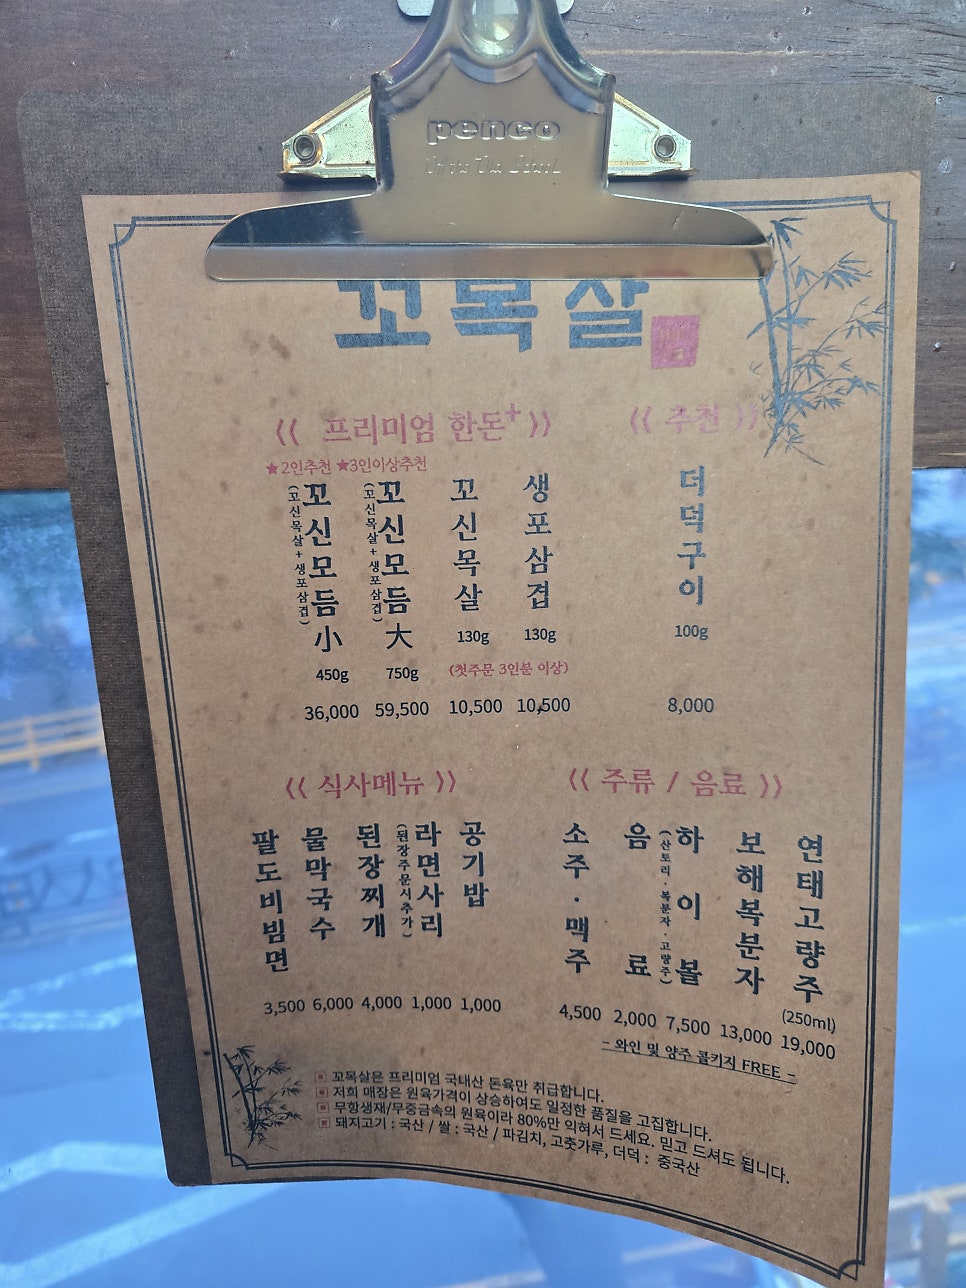 penco
꼬목살
《 프리미엄 한돈+ 》
★2인추천 ★3인이상추천
꼬신모듬 小
(꼬신목살+생포삼겹)
450g
36,000
꼬신모듬 大
(꼬신목살+생포삼겹)
750g
59,500
꼬신목살
130g
10,500
생포삼겹
130g
10,500
(첫주문 3인분 이상)
《 추천 》
더덕구이
100g
8,000
《 식사메뉴 》
팔도비빔면
3,500
물막국수
6,000
된장찌개
4,000
라면사리
(된장주문시추가)
1,000
공기밥
1,000
《 주류 / 음료 》
소주·맥주
4,500
음료
2,000
하이볼
(산토리·복분자·고량주)
7,500
보해복분자
13,000
연태고량주
(250ml)
19,000
- 와인 및 양주 콜키지 FREE -
꼬목살은 프리미엄 국내산 돈육만 취급합니다.
저희 매장은 원육가격이 상승하여도 일정한 품질을 고집합니다.
무항생재/무중금속의 원육이라 80%만 익혀서 드세요. 믿고 드셔도 됩니다.
돼지고기 : 국산 / 쌀 : 국산 / 파김치, 고춧가루, 더덕 : 중국산